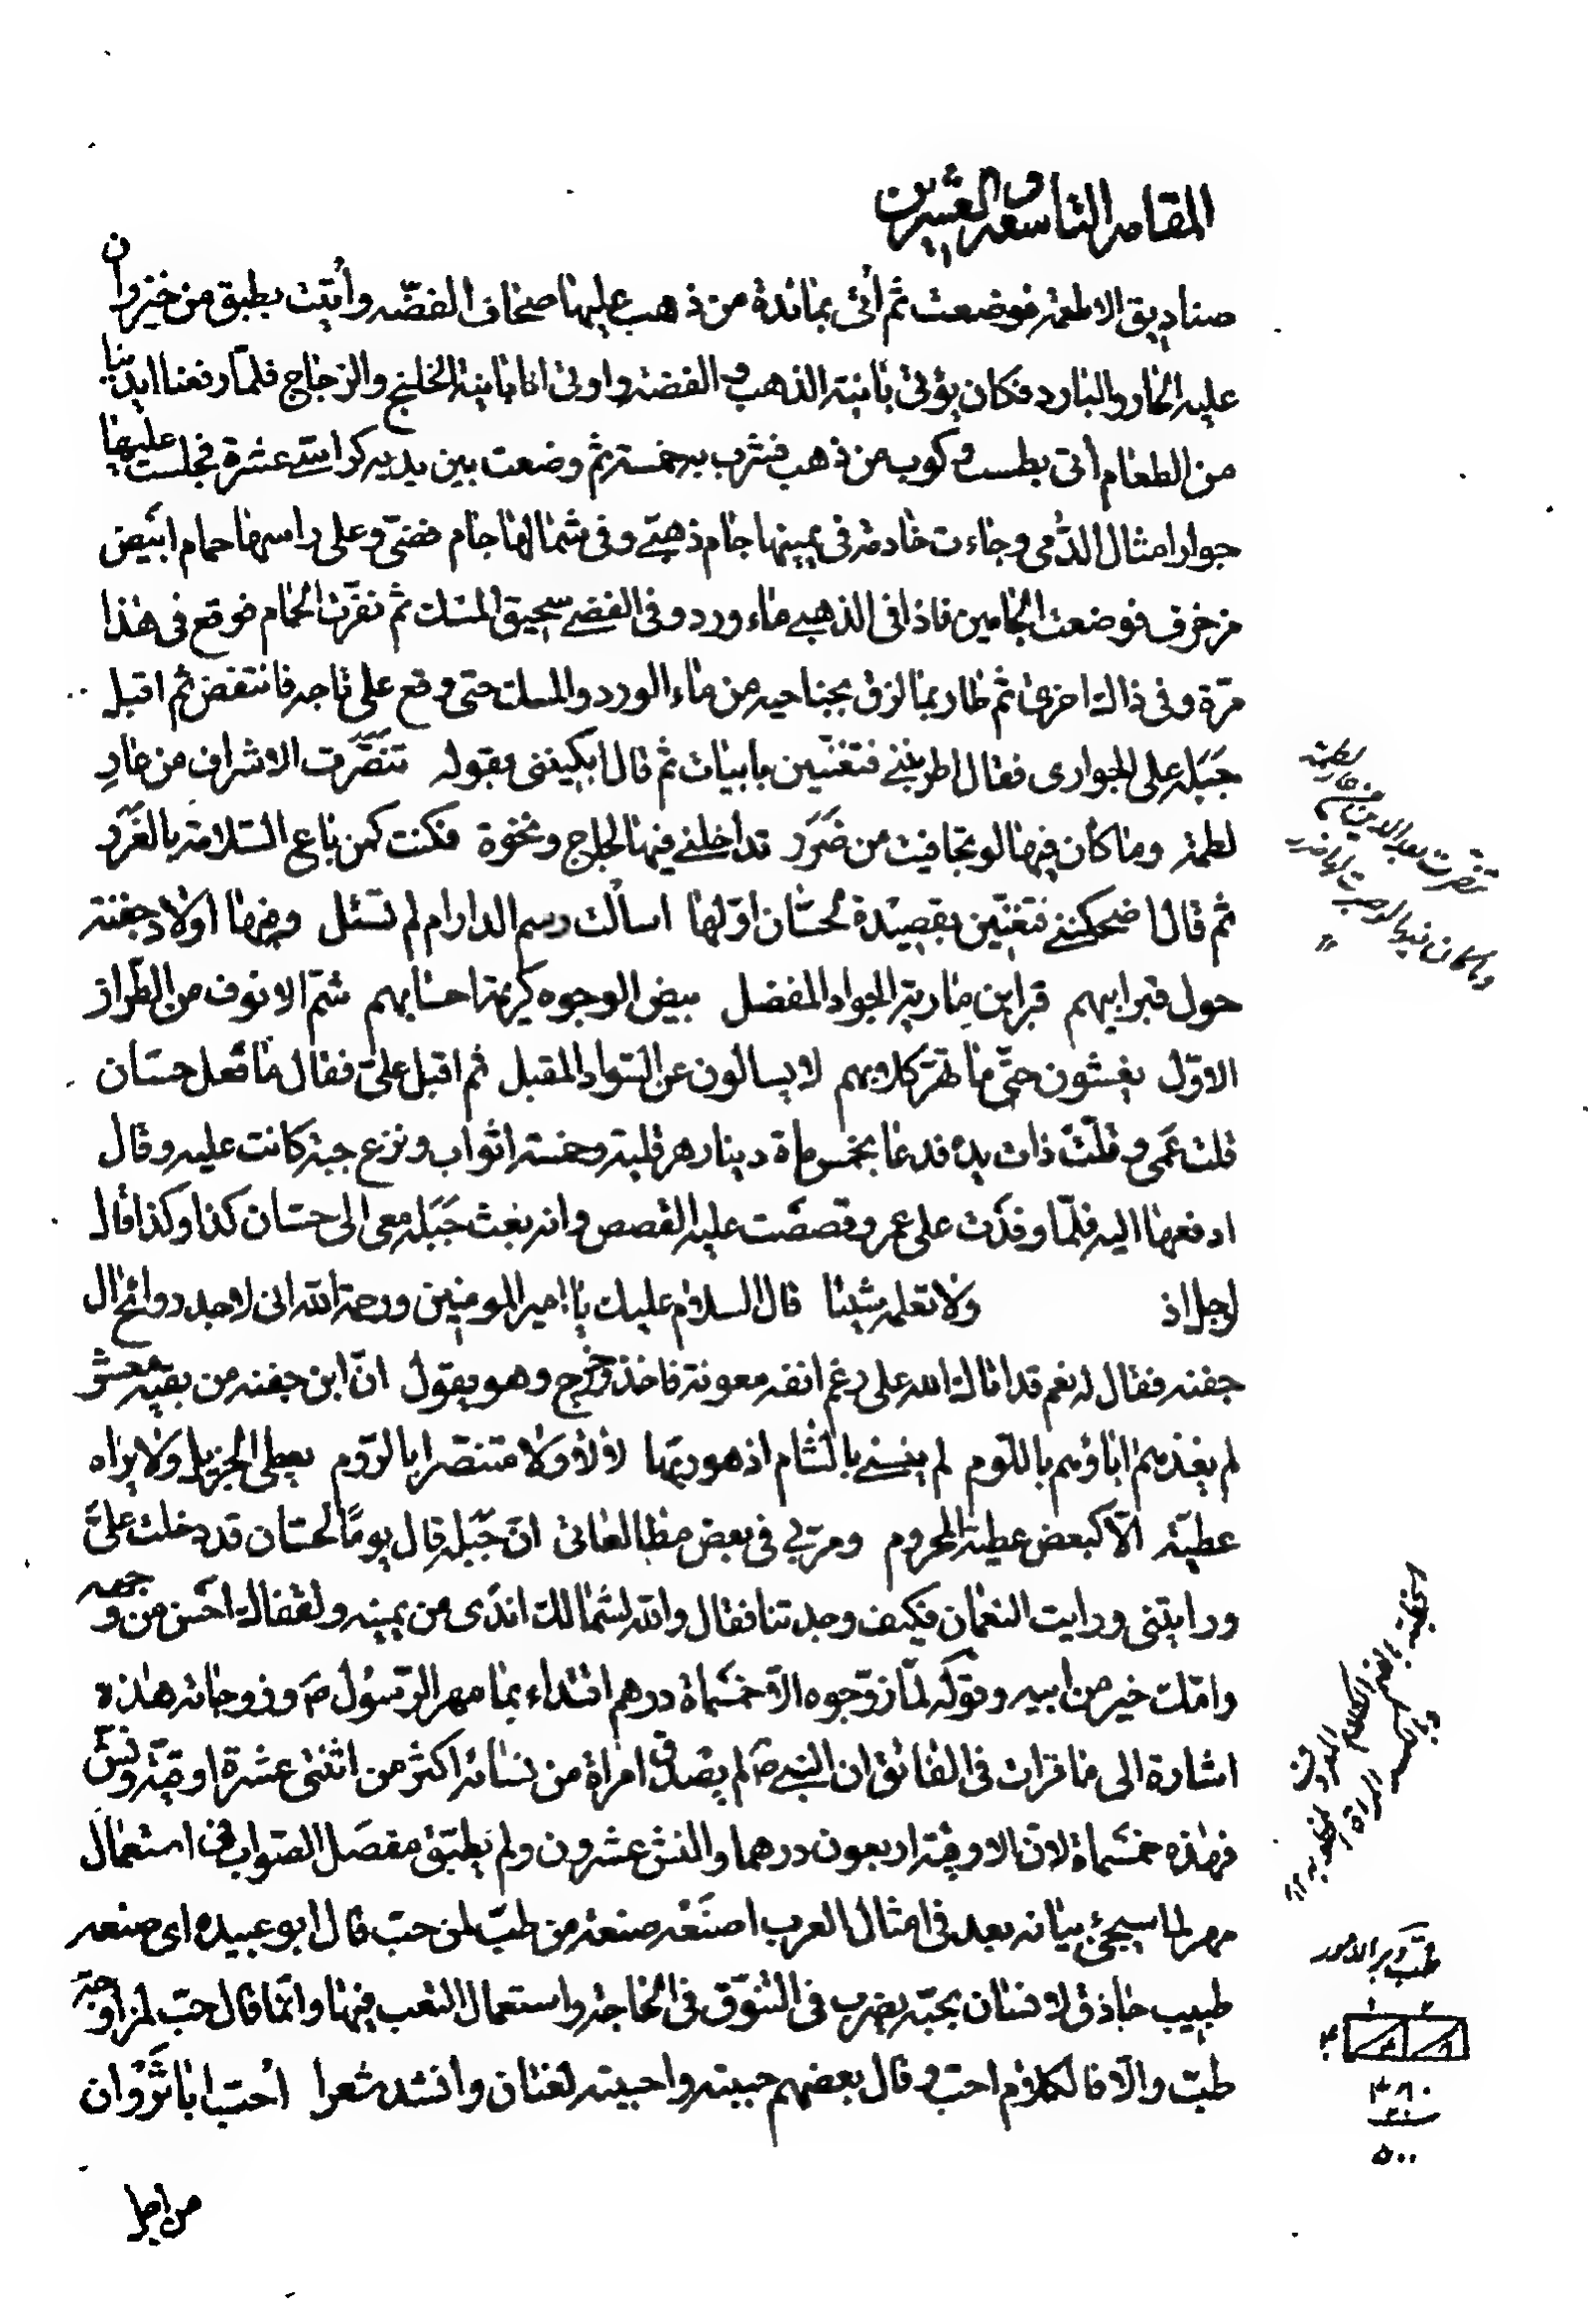 المقامه التاسعه والعشرين
صناديق الاطعمة فوضعت ثم أتى بمائدة من ذهب عليها صحاف الفضّه وأتيت بطبق من خيزران
عليه الحار والبارد فكان يؤتى بآنية الذهب والفضة واوتى انا بآنية الخلنج والزجاج فلمّا رفعنا ايدينا
من الطعام أتى بطست وكوب من ذهب فشرب به خمسة ثم وضعت بين يديه كراسي عشرة فجلست عليها
جوار امثال الدُّمى وجاءت خادمة في يمينها جام ذهبّي وفي شمالها جام فضّى وعلى راسها حمام ابيَض
مزخرف فوضعت الجامين فاذا في الذهبي ماء ورد وفي الفضي سحيق المسك ثم نفّرت الحمام فوقع في هذا
مرّة وفي ذاك اخرى ثم طار بما لزق بجناحيه من ماء الورد والمسك حتى وقع على تاجه فانتفض ثم اقبل
جَبَلة على الجوارى فقال اطربننى فتغنّين بابيات ثم قال ابكيننى بقوله تنصّرت الاشراف من عارِ
لطمة وما كان فيها لو تجافيت من ضَرَر تداخلنى فيها لجاج ونخوة فكنت كمن باع السّلامة بالغَرَر
ثم قال اضحكننى فتغنّين بقصيدة لحسّان اوّلها اسألت رسم الدار ام لم تسئل ومنها اولاد جفنة
حول قبر ابيهم قبر ابن مارية الجواد المفضل بيض الوجوه كريمة احسابهم شمّ الانوف من الطّراز
الاوّل يغشون حتّى ما تهرّ كلابهم لا يسالون عن السّواد المقبل ثم اقبل علىّ فقال ما فعل حسّان
قلت عَمى وقلّت ذات يده فدعا بخمس ماة دينار هرقلية وخمسة اثواب ونزع جبة كانت عليه وقال
ادفعها اليه فلمّا وفدت على عمر وقصصت عليه القصص وانه بعث جَبَلة معى الى حسّان كذا وكذا قال
ولا تعلمه شيئا قال السلام عليك يا امير المومنين ورحمة الله انى لاجد روائح ال
جفنه فقال له نعم قد اتاك الله على رغم انفه معونة فاخذ وخرج وهو يقول انّ ابن جفنه من بقيّه معشر
لم يغذهم اباؤهم باللّوم لم ينسنى بالشام اذ هو ربّها لا ولا ولا متنصّرا بالرّوم يعطى الجزيل ولا يراه
عطيّة الّا كبعض عطية المحروم ومرّ بى في بعض مطالعاتى انّ جَبَلة قال يومًا لحسّان قد دخلت علىَّ
ورايتنى ورايت النعمان فكيف وجدتنا فقال والله لشمالك اندى من يمينه ولقفاك احَسن من وجهه
وامّك خير من ابيه وقوله لما زوّجوه الّا خمسَماة درهم اقتداء بما مهر الرّسول صَ وزوجاته هذه
اشارة الى ما قرات في الفائق ان النبي صَ لم يصدق امراة من نسائه اكثر من اثنتى عشرة اوقيّة ونشّ
فهذه خمسَماة لان الاوقيّة اربعون درهما والنش عشرون ولم يطبّق مفصَل الصّواب في استعمال
مهر لما سيجئ بيانه بعد في امثال العرب اصنَعْه صنعة من طبّ لمن حبّ قال ابو عبيده اى صنعه
طبيب حاذق لانسان يحبّه يضرب في التنوّق في الحاجة واستعمال التعب فيها وانّما قال حبّ لمزاوجة
طبّ والّا فالكلام احبّ وقال بعضهم حببته واحببته لغتان وانشد شعرا احبّ ابا ثَرْوان
من اجل
تنصرت بعد الدين من عار لطمة
وما كان فيها لو صبرت لها ضرر
طبّ دبر الامور
٤٨٠
٢٠
٥٠٠